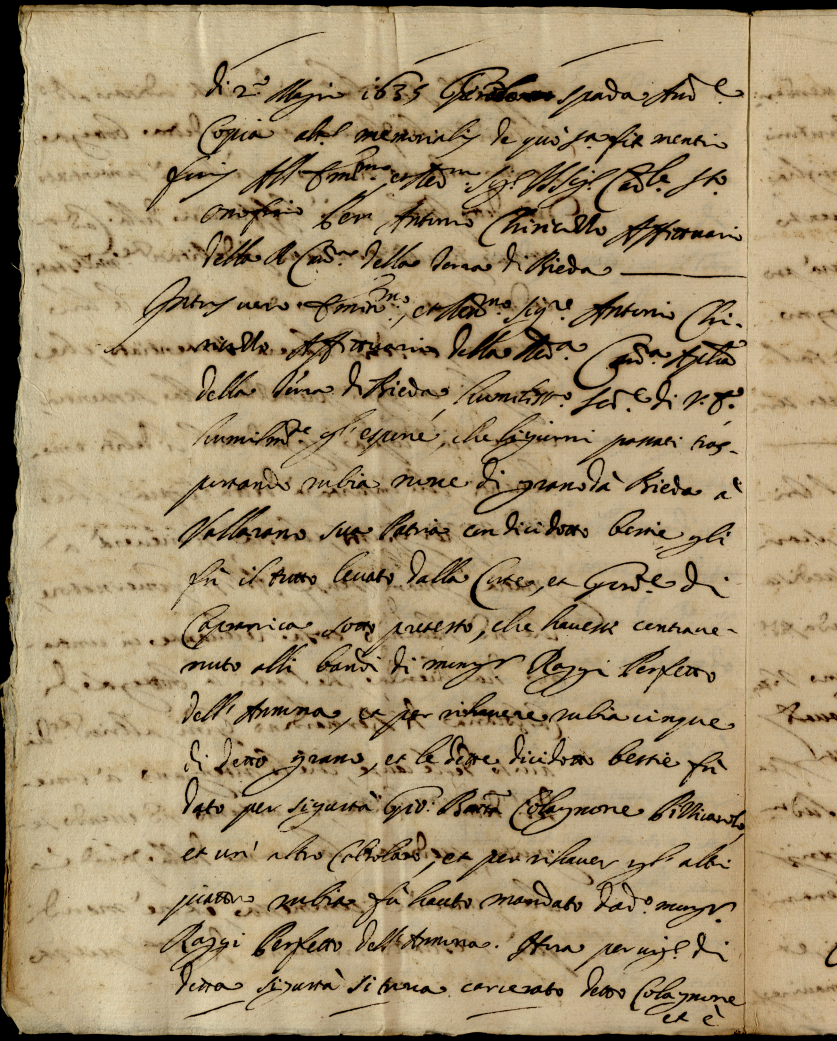 di 2.º Maggio 1635 spada Aud.e
Copia alt.s memorialis de quo s.a fit mentio
foris All' Em.mo et Re.mo Sig.r Sig.r Card.le S.to
onofrio Per Antonio Chiricello Affittuario
della R. Cam.a della terra di Bieda
Intus vero Emin.mo, et Re.mo Sig.re Antonio Chi-
ricello Affittuario della Re.da Cam.a Ap.lica
della Terra di Bieda humiliss.o ser.e di V. E.
humilm.te gl'espone, che li giorni passati tras-
portando rubia nove di grano da Bieda a
Vallarano sua Patria con dicidotto bestie gli
fù il tutto levato dalla Corte, et Gover.e di
Capranica sotto pretesto, che havesse contrave-
nuto alli bandi di mons.r Raggi Perfetto
dell'Annona, et per rihavere rubia cinque
di detto grano, et le dette dicidotto bestie fù
dato per sigurtà Gio: Batta Colagnone Pillicciarolo,
et un' altro Calzolaro, et per rihaver gl'altri
quattro rubia fù hauto mandato da d.o mons.r
Raggi Perfetto dell'Annona. Hora per vig.e di
detta sigurtà si trova carcerato detto Colagnone
et è